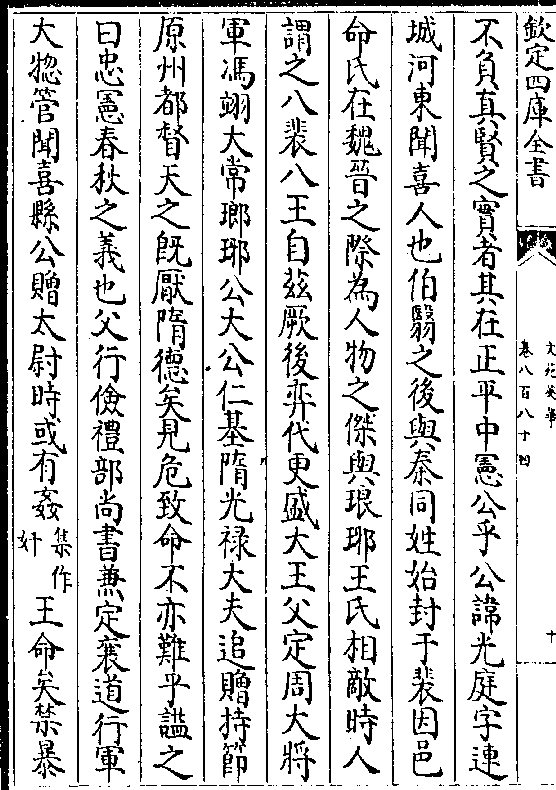 欽定四庫全書
文苑英華
卷八百八十四
十
不負真賢之實者其在正平中憲公乎公諱光庭字連
城河東聞喜人也伯翳之後與秦同姓始封于裴因邑
命氏在魏晉之際為人物之傑與琅琊王氏相敵時人
謂之八裴八王自茲厥後弈代更盛大王父定周大將
軍馮翊大常瑯琊公大公仁基隋光禄大夫追贈持節
原州都督天之既厭隋德矣見危致命不亦難乎謚之
曰忠憲春秋之義也父行儉禮部尚書兼定襄道行軍
大揔管聞喜縣公贈太尉時或有姦集作奸王命矣禁暴